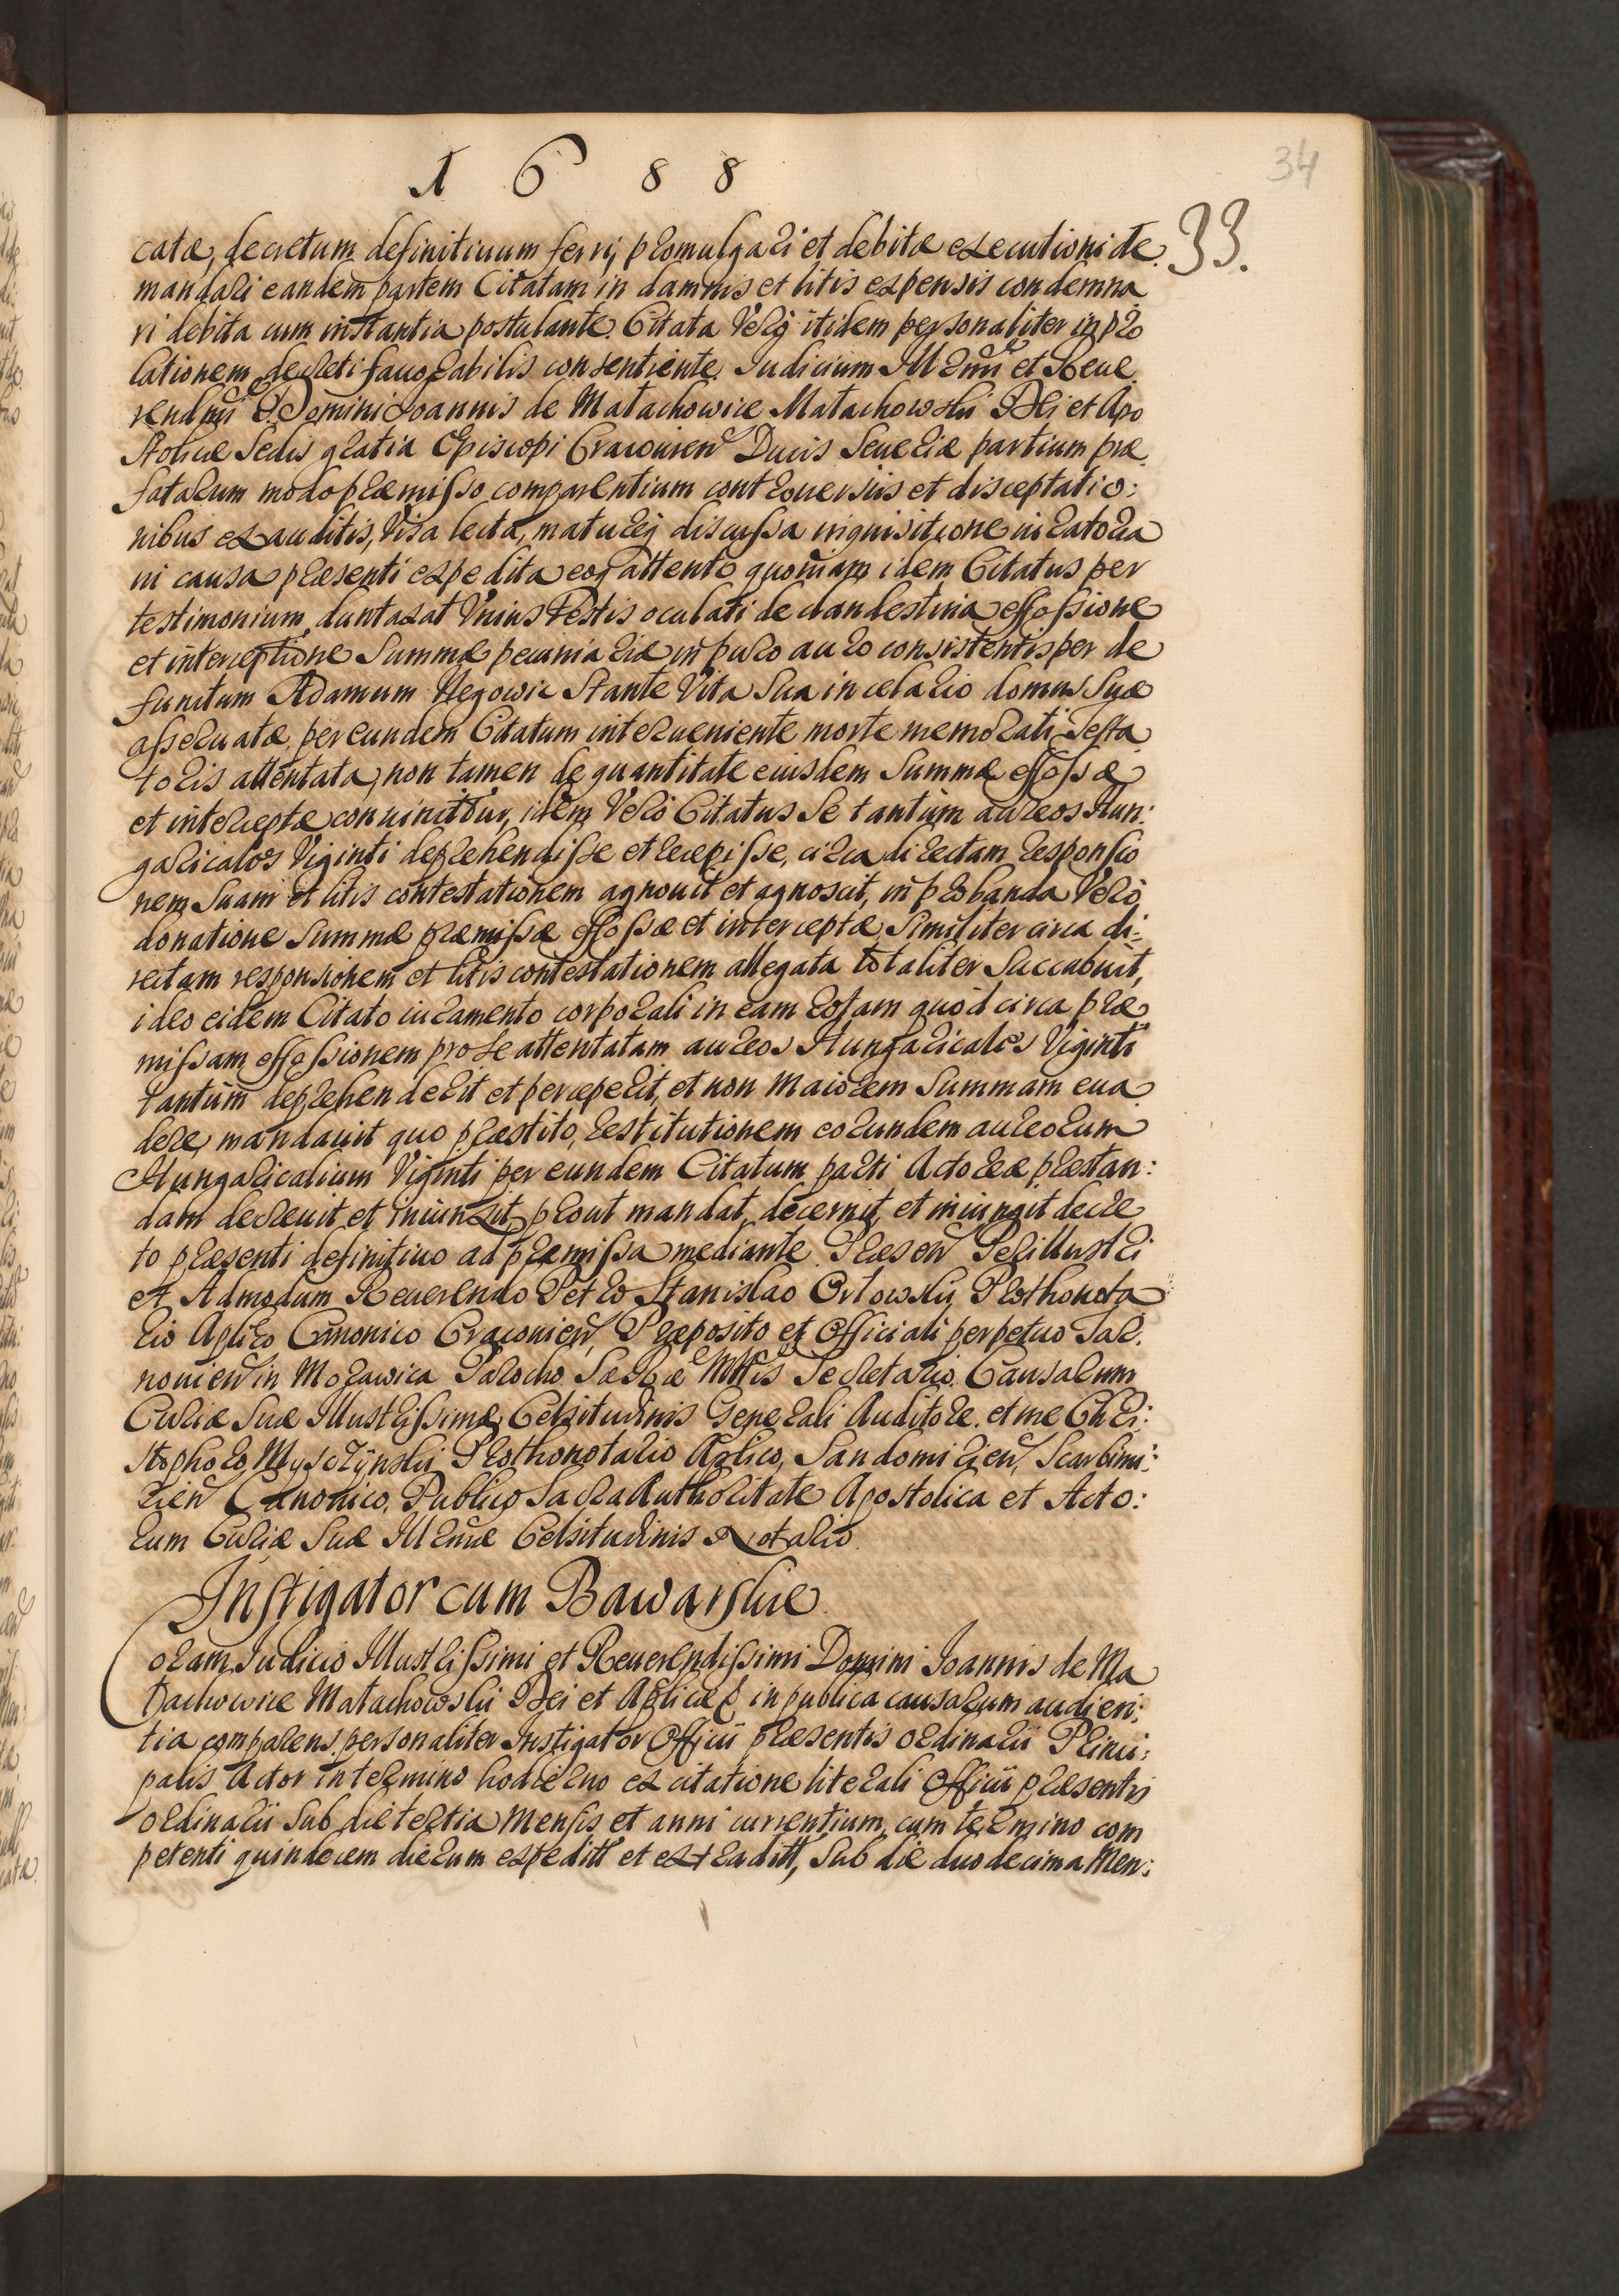 1688
34
33.
catæ, decretum definitiuum ferri, promulgari et debitæ executioni de
mandari eandem partem Citatam in damnis et litis expensis condemna
ri debita cum instantia postulante. Citata Verò itidem personaliter in pro
lationem decreti fauorabilis consentiente. Iudicium Illrmi et Reue
rendmi Domini Ioannis de Małachowice Małachowski Dei et Apo
stolicæ Sedis gratia Episcopi Cracouien Ducis Seueriæ partium præ
fatarum modo præmisso comparentium controuersijs et disceptatio:
nibus exauditis, Visa lecta, matureq discussa inquisitione iuratoria
in causa præsenti expedita eoq attento quoniam idem Citatus per
testimonium duntaxat Vnius Testis oculati de clandestina effossione
et interceptione Summæ pecuniariæ in puro auro consistentis per de
functum Adamum Negowic Stante Vita Sua in celario domus Suæ
asseruatæ, per eundem Citatum interueniente morte memorati Testa
toris attentata, non tamen de quantitate eiusdem Summæ effossæ
et interceptæ conuincitur, idem Verò Citatus Se tantùm aureos Hun:
garicales Viginti deprehendisse et recepisse, circa directam responsio
nem Suam et litis contestationem agnouit et agnoscit, in probanda Verò
donatione Summæ præmissæ effossæ et interceptæ Similiter circa di:
rectam responsionem et litis contestationem allegata totaliter Succubuit,
ideo eidem Citato iuramento corporali in eam rotam quòd circa præ
missam effossionem pro Se attentatam aureos Hungaricales Viginti
tantùm deprehenderit et perceperit, et non maiorem Summam eua
dere, mandauit quo præstito, restitutionem eorundem aureorum
Hungaricalium Viginti per eundem Citatum parti Actoreæ præstan:
dam decreuit et iniunxit, prout mandat, decernit, et iniungit decre
to præsenti definitiuo ad præmissa mediante. Præsen Perillustri
et Admodum Reuerendo Petro Stanislao Orłowski Prothonota
rio Aplico Canonico Cracouien, Præposito et Officiali perpetuo Tar
nouien in Morawica Parocho Sacræ Mttis Secretario Causarum
Curiæ Suæ Illustrissimæ Celsitudinis Generali Auditore. et me Chri:
stophoro Myszczynski Prothonotario Aplico, Sandomirien, Scarbimi:
rien Canonico, Publico Sacra Authoritate Apostolica et Acto:
rum Curiæ Suæ Illrmæ Celsitudinis Notario.
Instigator cum Bawarskie
Coram Iudicio Illustrissimi et Reuerendissimi Domini Ioannis de Ma
łachowice Małachowski Dei et Aplicæ in publica causarum audien:
tia comparens personaliter Instigator Officii præsentis ordinarii Princi:
palis Actor in termino hodierno ex citatione literali Officii præsentis
ordinarii Sub die tertia Mensis et anni currentium, cum termino com
petenti quindecem dierum expeditt et extraditt, Sub die duodecima Men: